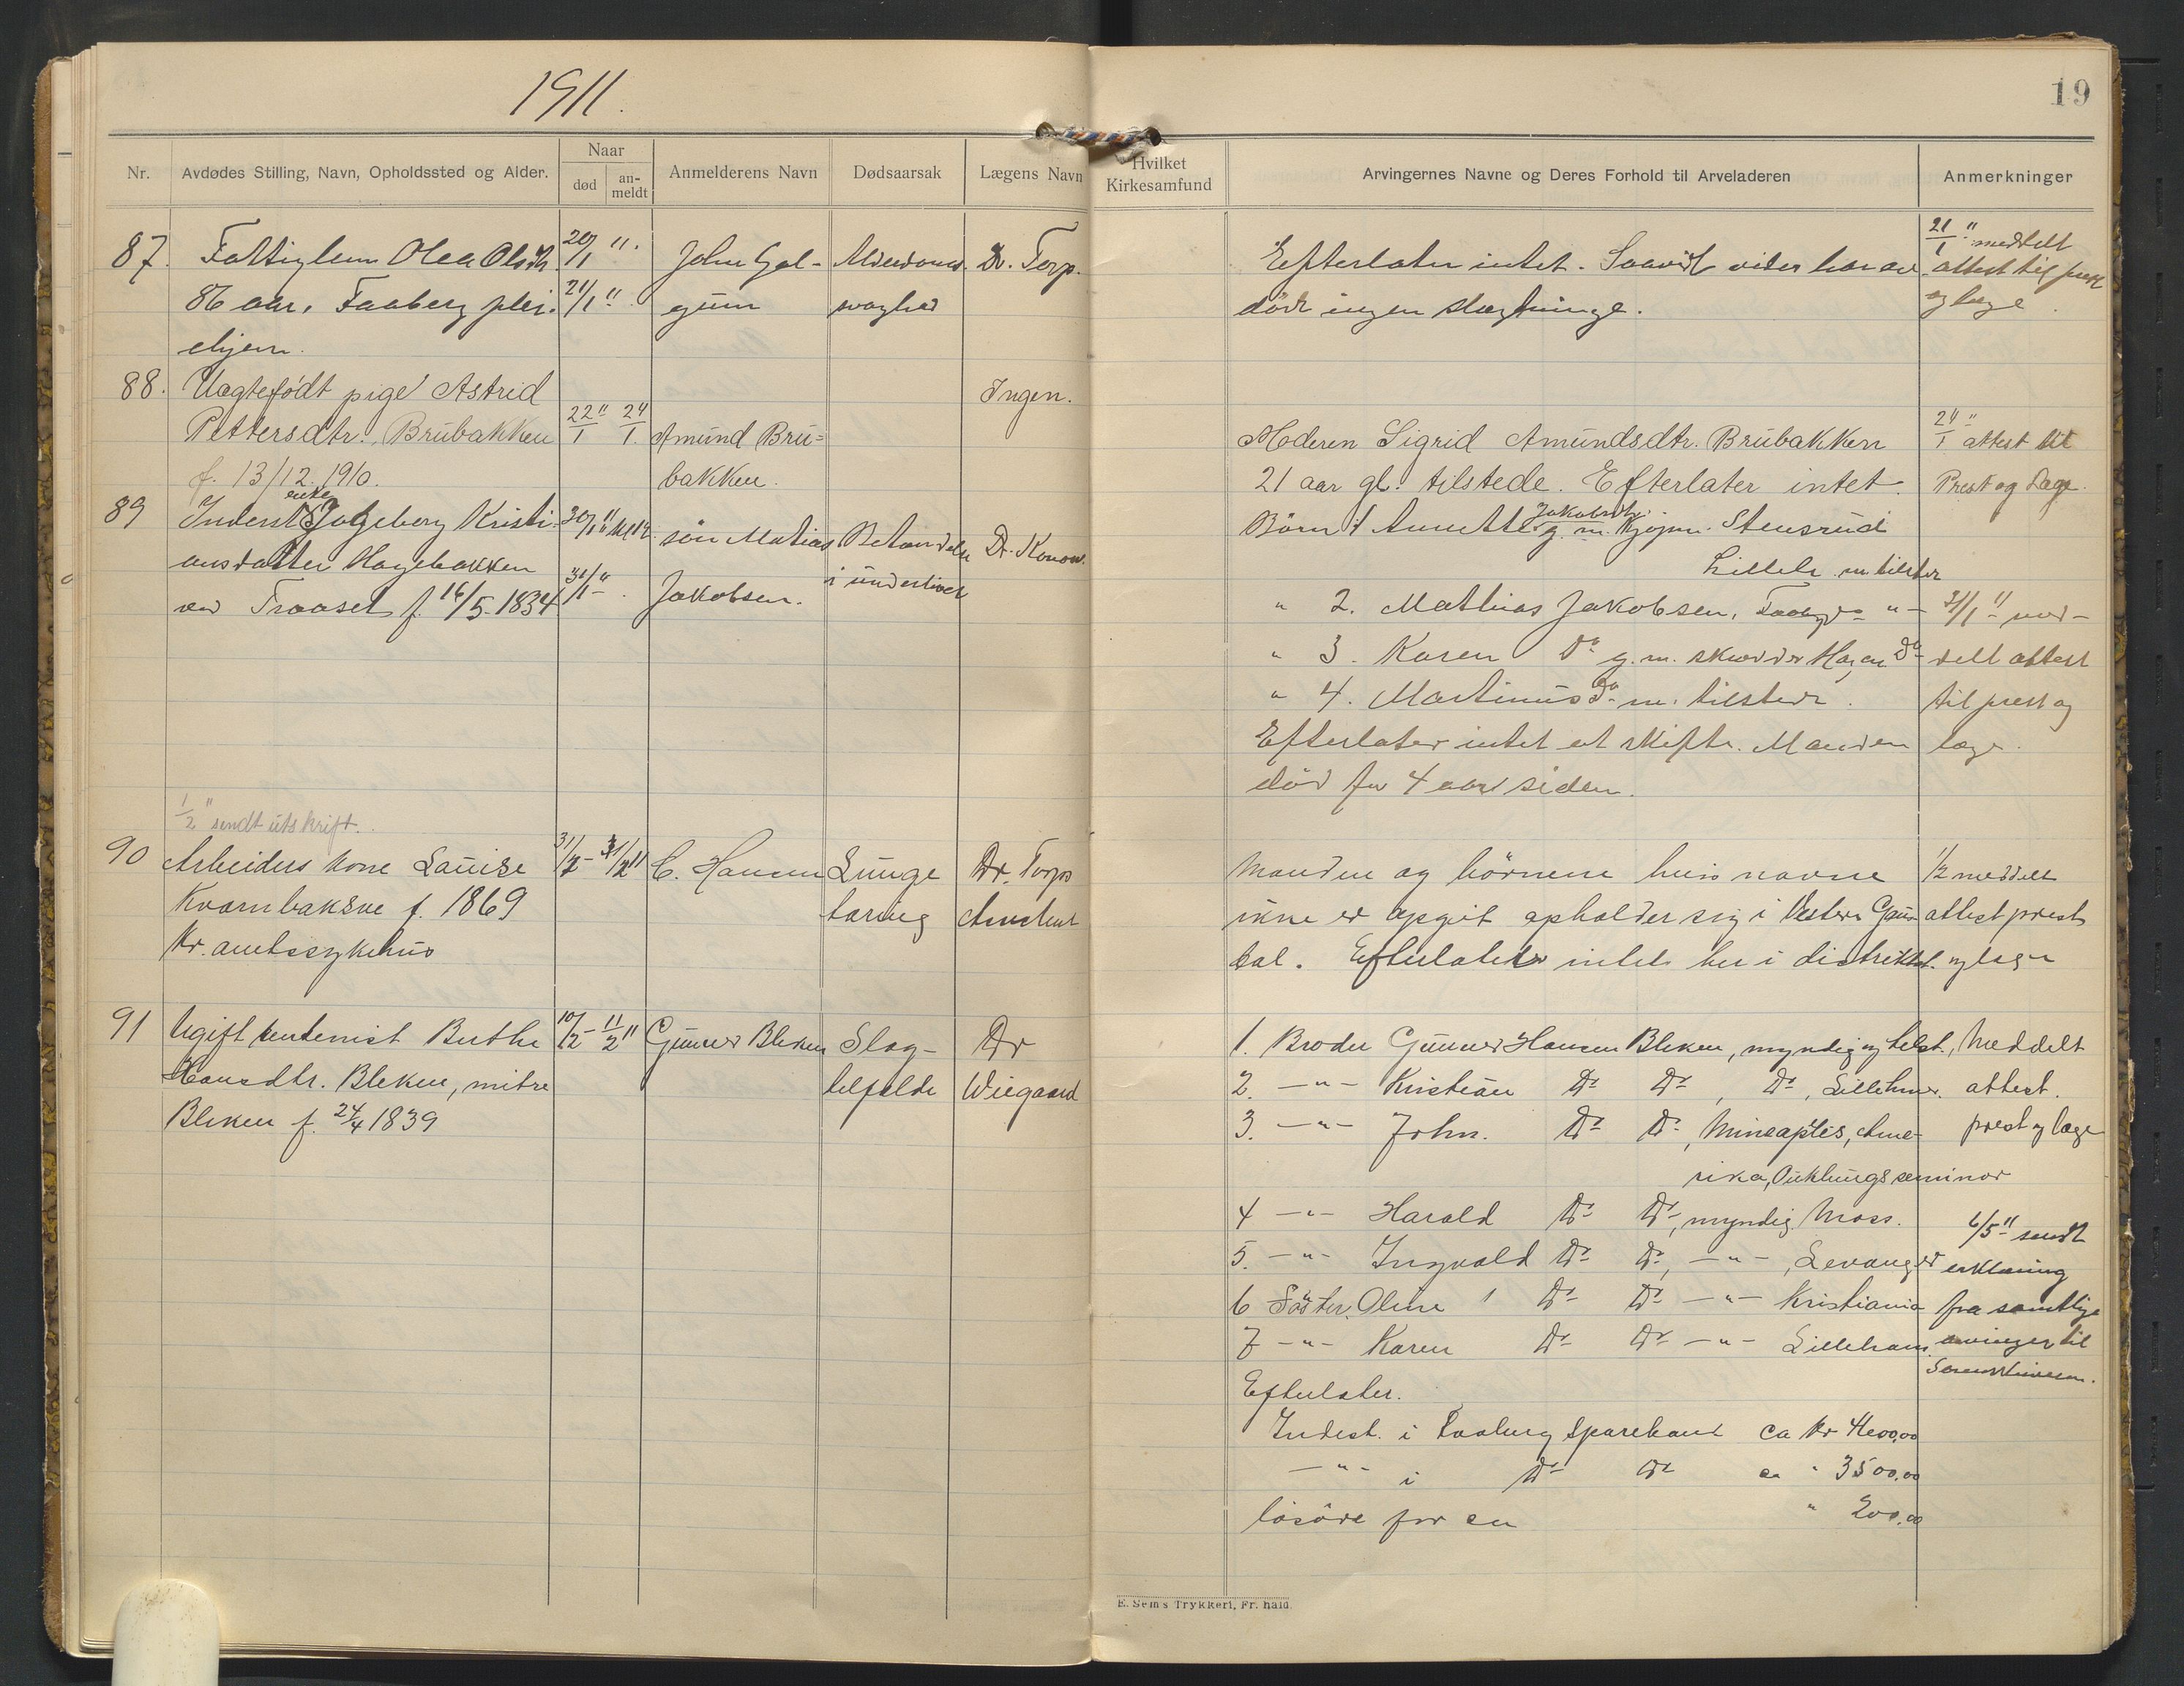 1911.
19
Nr.
Avdødes Stilling, Navn, Opholdssted og Alder.
Naar
død
an-
meldt
Anmelderens Navn
Dødsaarsak
Lægens Navn
Hvilket
Kirkesamfund
Arvingernes Navne og Deres Forhold til Arveladeren
Anmerkninger
87. Fattiglem Olea Olsdtr. 20/1 11. John Gal- Alderdoms- Dr. Torp.
86 aar, Faaberg plei- 21/1 " gum svaghed
ehjem.
Efterlater intet. Saavidt vides har av-
døde ingen slægtninge.
21/1 " meddelt
attest til prest
og læge
88. Uægtefødt pige Astrid Ingen.
Pettersdtr. Brubakken 22/1 " 24/1. Amund Bru-
f. 13/12. 1910. bakken.
Moderen Sigrid Amundsdtr. Brubakken
21 aar gl. tilstede. Efterlater intet.
24/1 " attest til
Prest og Læge.
enke
89 Inderst Ingeborg Kristi- 30/1 11 søn Matias Betændelse Dr. Konow.
ansdatter Hagebakken 31/1 " . Jakobsen. i underlivet
ved Traaset f. 16/5 1834
Jakobsdtr.
Børn 1 Annette g. m. Kjøpm. Stensrud
Lilleh. m. tilstede
" 2. Mathias Jakobsen, Faaberg " -
" 3. Karen Do g. m. skrædder Hagen Do
" 4. Martinus Do m. tilstede.
Efterlater intet at skifte. Manden
død for 4 aar siden.
31/1 11 med-
delt attest
til prest og
læge.
1/2 " sendt utskrift.
90 Arbeiders kone Lauise 31/2 - 31/2 11 C. Hansen Lunge Dr. Torps
Kvarnbaksve f. 1869 tæring
Kr. amtssykehus
Manden og børnene hvis navne
ikke er opgit opholder sig i Vestre Gaus-
dal. Efterlater intet her i distriktet.
1/2 meddelt
attest prest
og læge
91 Ugift Berthe 10/2 - 11/2 11 Gunner Bleken Slag- Dr
Hansdtr. Bleken, mitre tilfælde Wiegaard
Bleken f. 24/4 1839
1. Broder Gunner Hansen Bleken, myndig og tilst.,
2. - " - Kristian Do Do , Do , Lillehmr.
3. - " - John. Do Do , Mineaplis, Ame-
rika, seminar
4 - " - Harald Do Do , myndig Moss.
5. - " - Ingvald Do Do , - " - , Levanger
6 Søster. Oline Do Do - " - Kristiania
7 - " - Karen Do Do - " - Lilleham.
Efterlater.
Indest. i Faaberg Sparebank ca Kr 4100,00
- " - i Do Do ca " 3500,00
løsøre for ca " 200,00
Meddelt
attest.
prest og læge
6/5 11 sendt
erklæring
fra samtlige
arvinger til
Sorenskriveren.
E. Sem's Trykkeri, Fr.hald.